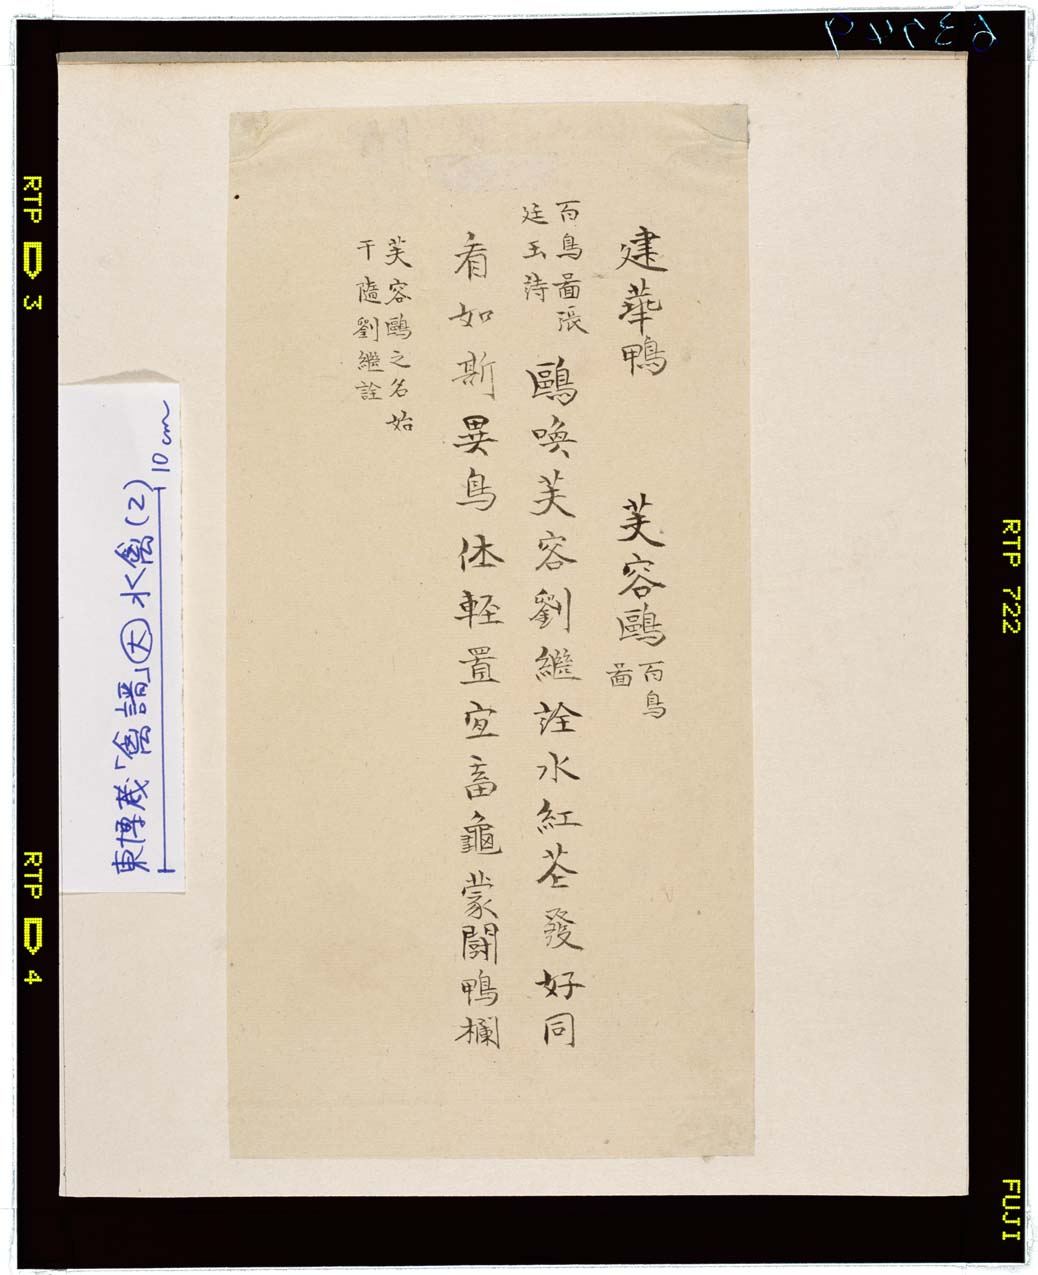 建華鴨　芙容鷗 百鳥
啚
百鳥啚張
廷玉詩
鷗喚芙容劉継詮水紅苤發好同
看如斯異鳥体軽置宜畜龜蒙闘鴨欄
芙容鷗之名始
干隨劉継詮
東博蔵「禽譜」㊅水禽(2)
10cm
RTP 3
RTP 4
RTP 722
FUJI